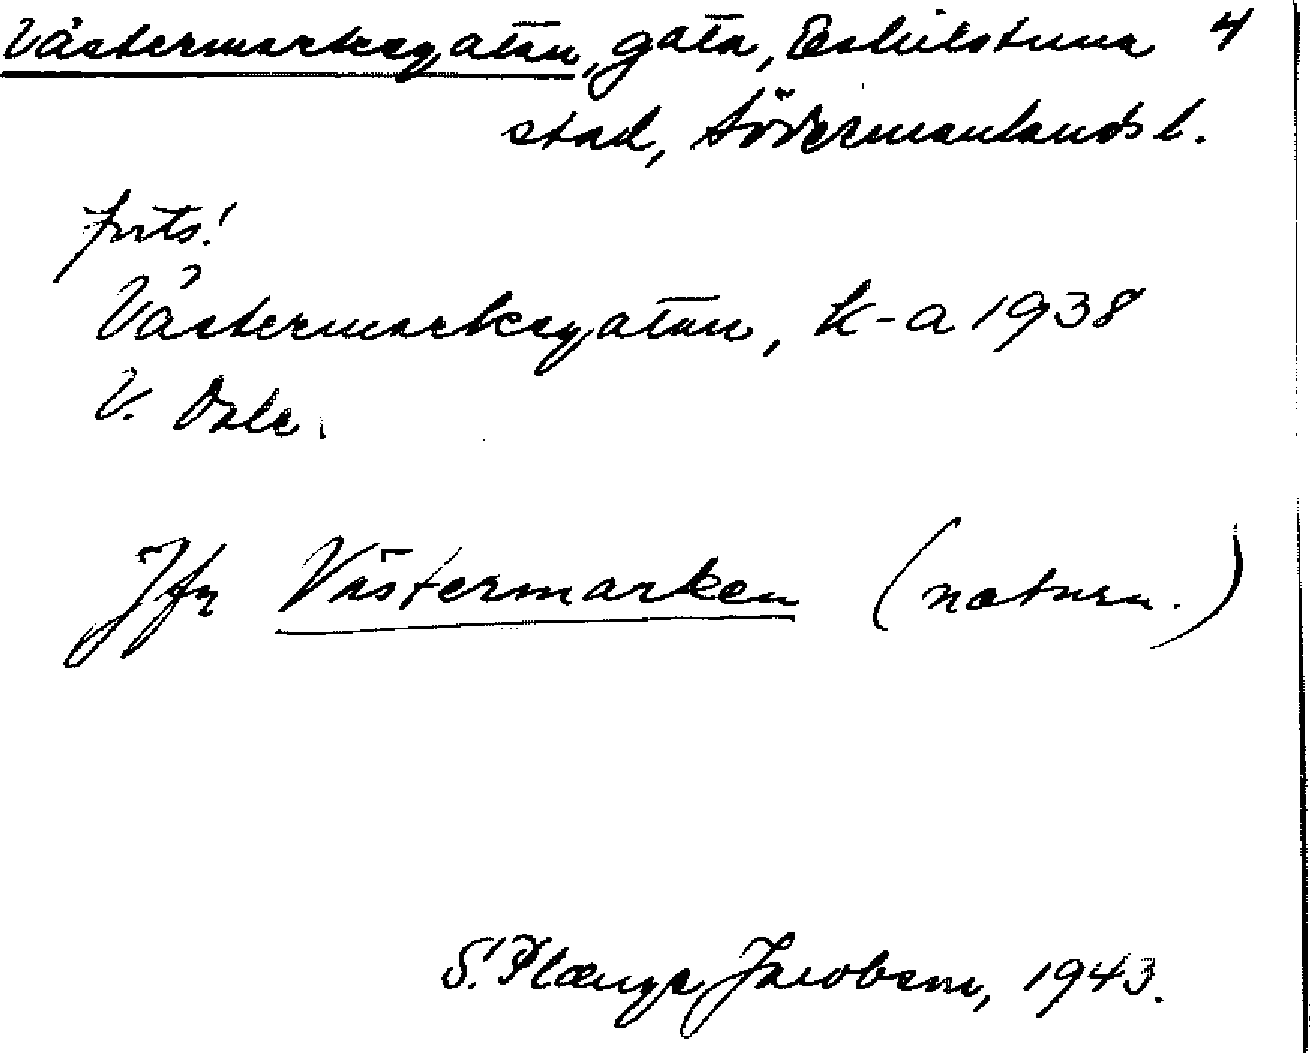 Västermarksgatan, gata, Eskilstuna 4
stad, Södermanlands l.
forts!
Västermarksgatan, k-a 1938
V. Dale.
Jfr Västermarken (naturn.)
S. Plænge Jacobson, 1943.